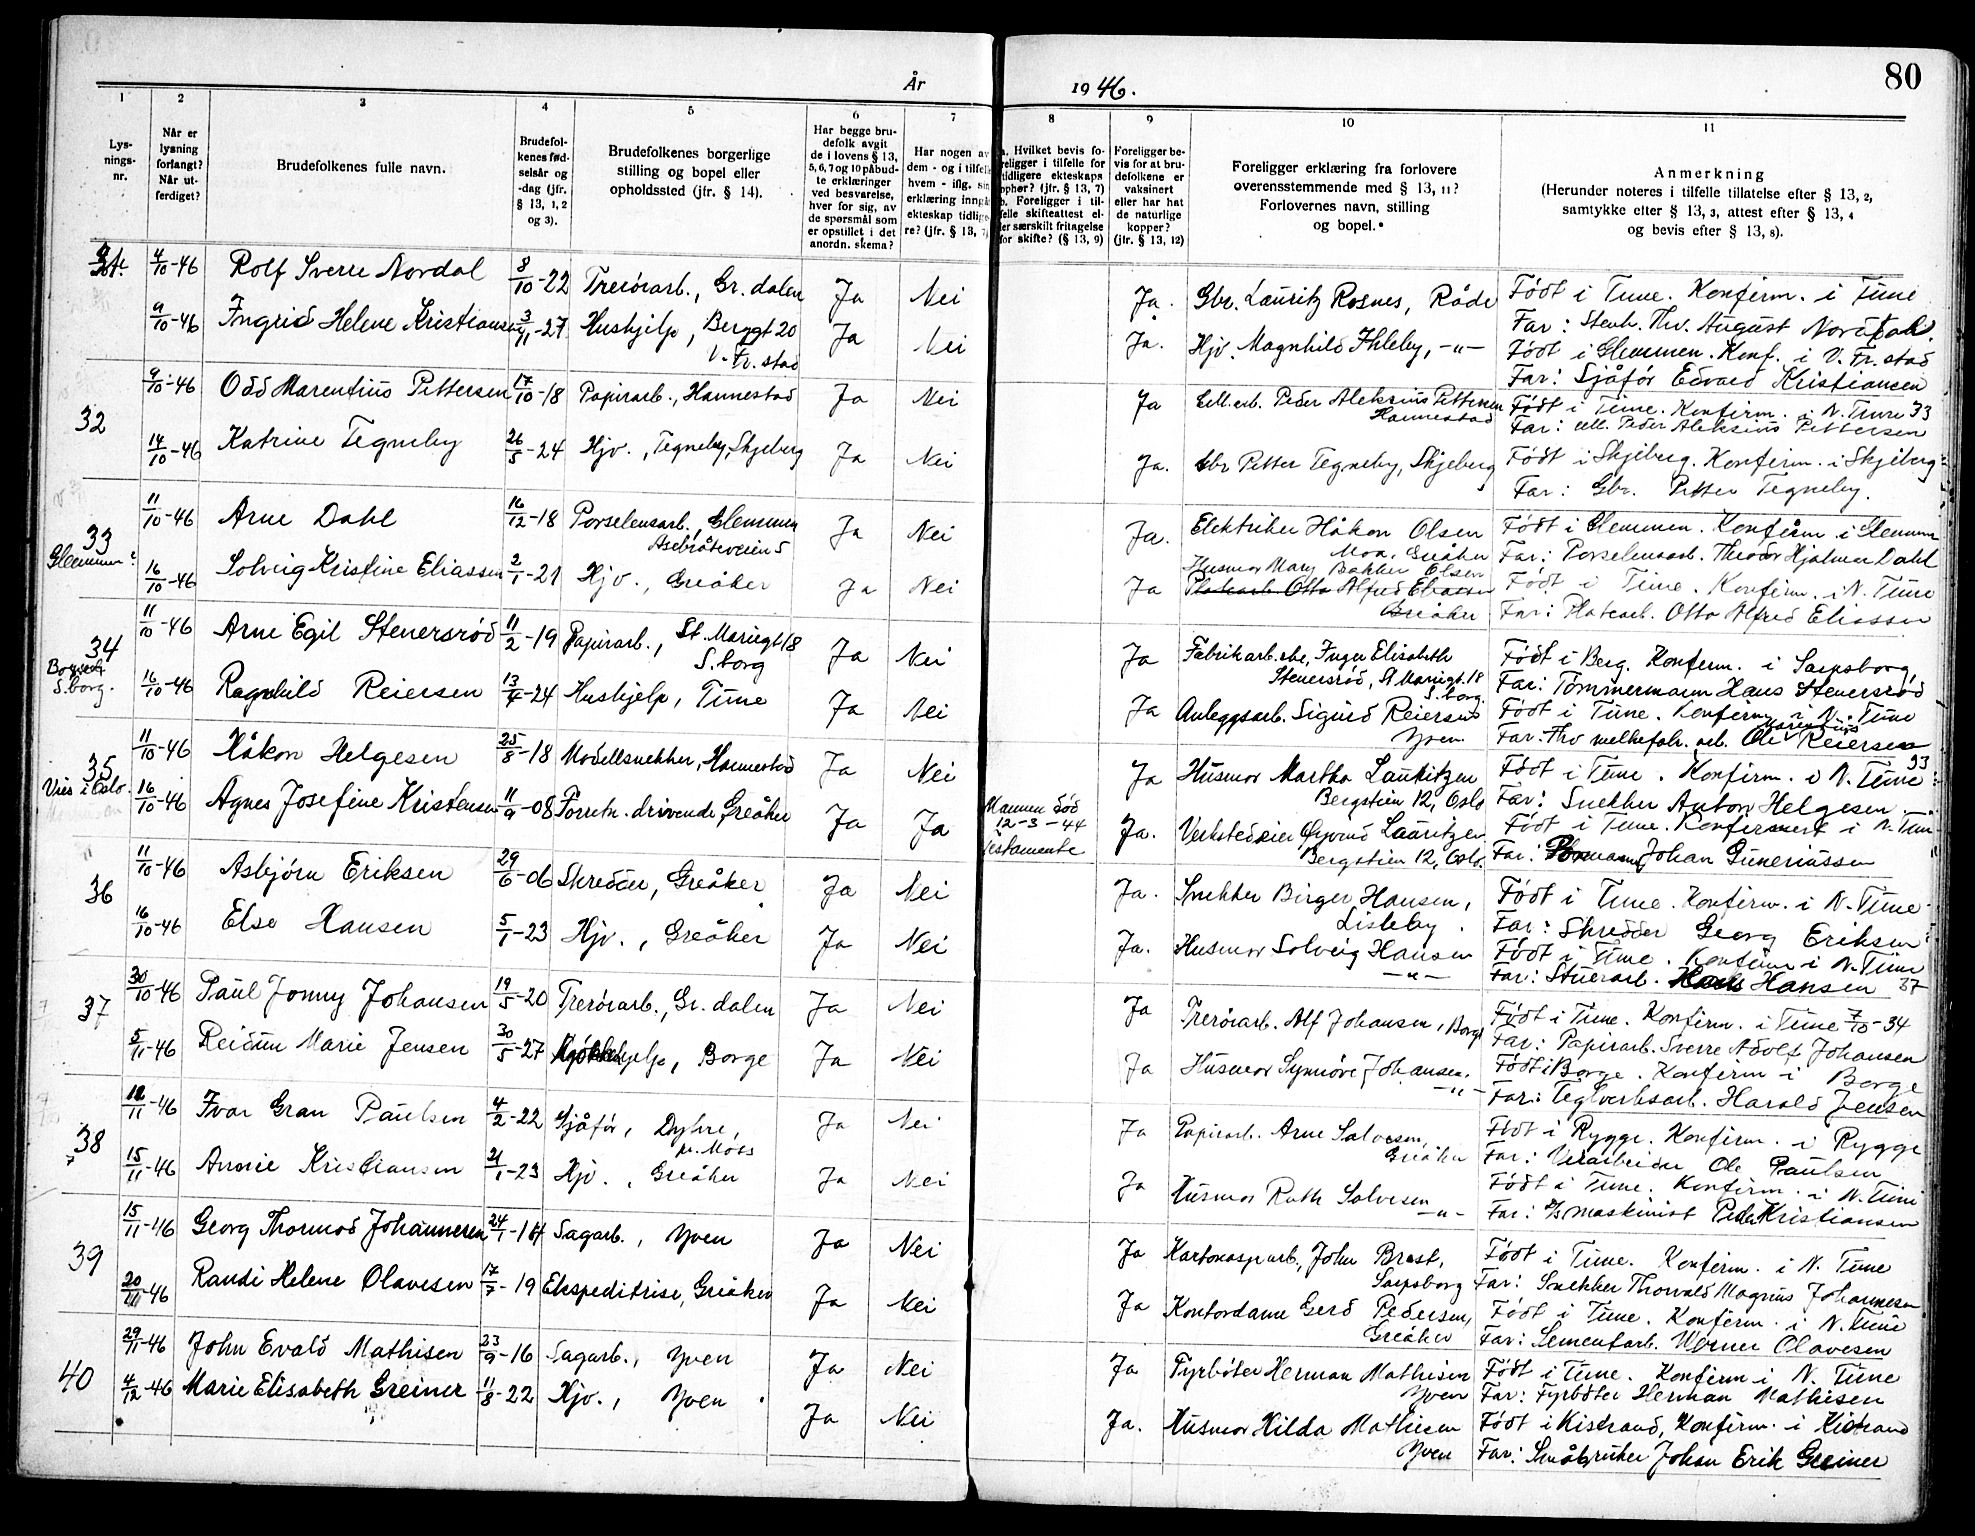 År 1946.
80
1 2 3 4 5 6 7 8 9 10 11
Lys-
nings-
nr.
Når er
lysning
forlangt?
Når ut-
ferdiget?
Brudefolkenes fulle navn.
Brudefol-
kenes fød-
selsår og
-dag (jfr.
§ 13, 1, 2
og 3).
Brudefolkenes borgerlige
stilling og bopel eller
opholdssted (jfr. § 14).
Har begge bru-
defolk avgit
de i lovens § 13,
5, 6, 7 og 10 påbud-
te erklæringer
ved besvarelse,
hver for sig, av
de spørsmål som
er opstillet i det
anordn. skema?
Har nogen av
dem - og i tilfelle
hvem - iflg. sin
erklæring inngå
ekteskap tidlige-
re? (jfr. § 13, 7)
a. Hvilket bevis fo-
religger i tilfelle for
tidligere ekteskaps
ophør? (jfr. § 13, 7)
b. Foreligger i til-
felle skifteattest el-
ler særskilt fritagelse
for skifte? (§ 13, 9)
Foreligger be-
vis for at bru-
defolkene er
vaksinert
eller har hat
de naturlige
kopper?
(jfr. § 13, 12)
Foreligger erklæring fra forlovere
overensstemmende med § 13, 11?
Forlovernes navn, stilling
og bopel.
Anmerkning
(Herunder noteres i tilfelle tillatelse efter § 13, 2,
samtykke efter § 13, 3, attest efter § 13, 4
og bevis efter § 13, 8).
4/10-46 Rolf Sverre Nordal 8/10-22 Trerørarb., Gr. dalen Ja Nei Ja. Gbr. Lauritz Rosnes, Råde Født i Tune. Konfirm. i Tune
Far: Stenh. Thv. August Nordal.
9/10-46 Ingrid Helene Kristiansen 3/11-27 Hushjelp, Berggt 20 Ja Nei Ja. Hjv. Magnhild Ihleby, -"- Født i Glemmen. Konf. i V. Fr. stad
V. Fr. stad
Far: Sjåfør Edvard Kristiansen
32 9/10-46 Odd Marentius Pettersen 17/10-18 Papirarb., Hannestad Ja Nei Ja Cell.arb. Peder Aleksius Pettersen Født i Tune. Konfirm. i N. Tune 33
Hannestad Far: cell. Peder Aleksius Pettersen
14/10-46 Katrine Tegneby 26/5-24 Hjv., Tegneby, Skjeberg Ja Nei Ja. Gbr Petter Tegneby, Skjeberg Født i Skjeberg. Konfirm. i Skjeberg
Far: Gbr. Petter Tegneby.
33 11/10-46 Arne Dahl 16/12-18 Porselensarb., Glemmen Ja Nei Ja. Elektriker Håkon Olsen Født i Glemmen. Konfirm. i Glemmen
Moa, Greåker Far: Porselensarb. Theodor Hjalmar Dahl
Glemmen 16/10-46 Solveig Kristine Eliassen 2/1-21 Hjv., Greåker Ja Nei Ja Husmor Mary Bakker Olsen
Platearb. Otto Alfred Eliassen Født i Tune. Konfirm. i N. Tune
Greåker Far: Platearb. Otto Alfred Eliassen
34 11/10-46 Arne Egil Stenersrød 11/2-19 Papirarb., St. Mariegt 18 Ja Nei Ja Fabrikarb.ske, Inger Elisabeth Født i Berg. Konfirm. i Sarpsborg,
S. borg Stenersrød, St. Mariegt. 18 Far: Tømmermann Hans Stenersrød
S. borg
S. borg. 16/10-46 Ragnhild Reiersen 13/4-24 Hushjelp, Tune Ja Nei Ja Anleggsarb. Sigurd Reiersen Født i Tune. Konfirm. i N. Tune
Yven. Far: Thv melkefabr. arb. Ole Reiersen
35 11/10-46 Håkon Helgesen 25/8-18 Modellsnekker, Hannestad Ja Nei Ja Husmor Martha Lauritzen Født i Tune. Konfirm. i N. Tune 33
Bergstien 12, Oslo Far: Snekker Anton Helgesen.
Vies i Oslo. 16/10-46 Agnes Josefine Kristensen 11/9-08 Forretn. drivende, Greåker Ja Ja Mannen død
12-3-44
Testamente Ja. Verksteder Øyvind Lauritzen Født i Tune. Konfirmert i N. Tune
Bergstien 12, Oslo. Far: Johan Guneriussen
36 11/10-46 Asbjørn Eriksen 29/6-06 Skredder, Greåker Ja Nei Ja. Snekker Birger Hansen, Født i Tune. Konfirm. i N. Tune
Lisleby. Far: Skredder Georg Eriksen
16/10-46 Else Hansen 5/1-23 Hjv., Greåker Ja Nei Ja. Husmor Solveig Hansen Født i Tune. Konfirm i N. Tune
-"- Far: Stuerarb. Hansen 37
37 30/10-46 Paul Jonny Johansen 19/5-20 Trerørarb., Gr. dalen Ja Nei Ja Trerørarb. Alf Johansen, Borge Født i Tune. Konfirm. i Tune 7/10-34
Far: Papirarb. Sverre Adolf Johansen
5/11-46 Reidun Marie Jensen 30/5-27 Borge Ja Nei Ja Husmor Synnøve Johansen. Født i Borge. Konfirm i Borge
-"- Far: Teglverksarb. Harald Jensen
38 12/11-46 Ivar Gran Paulsen 4/2-22 Sjåfør, Dyhre, Ja Nei Ja Papirarb. Arne Salvesen, Født i Rygge. Konfirm. i Rygge
pr. Moss Greåker Far: Veiarbeider Ole Paulsen
15/11-46 Annie Kristiansen 21/1-23 Hjv., Greåker Ja Nei Ja Husmor Ruth Salvesen Født i Tune. Konfirm. i N. Tune
-"- Far: D/S maskinist Peder Kristiansen
39 15/11-46 Georg Thormod Johannesen 24/1-14 Sagarb., Yven Ja Nei Ja Kartonasjearb., John Brest, Født i Tune. Konfirm. i N. Tune
Sarpsborg Far: Snekker Thorvald Magnus Johannesen
20/11-46 Randi Helene Olavesen 17/7-19 Ekspeditrise, Greåker Ja Nei Ja Kontordame Gerd Pedersen, Født i Tune. Konfirm. i N. Tune
Greåker Far: Sementarb. Werner Olavesen
40 29/11-46 John Evald Mathisen 23/9-16 Sagarb., Yven Ja Nei Ja Fyrbøter Herman Mathisen Født i Tune. Konfirm i N. Tune
Yven Far: Fyrbøter Herman Mathisen
4/12-46 Marie Elisabeth Greiner 11/8-22 Hjv., Yven Ja Nei Ja. Husmor Hilda Mathisen Født i Kistrand, Konfirm. i Kistrand
Yven Far: Småbruker Johan Erik Greiner